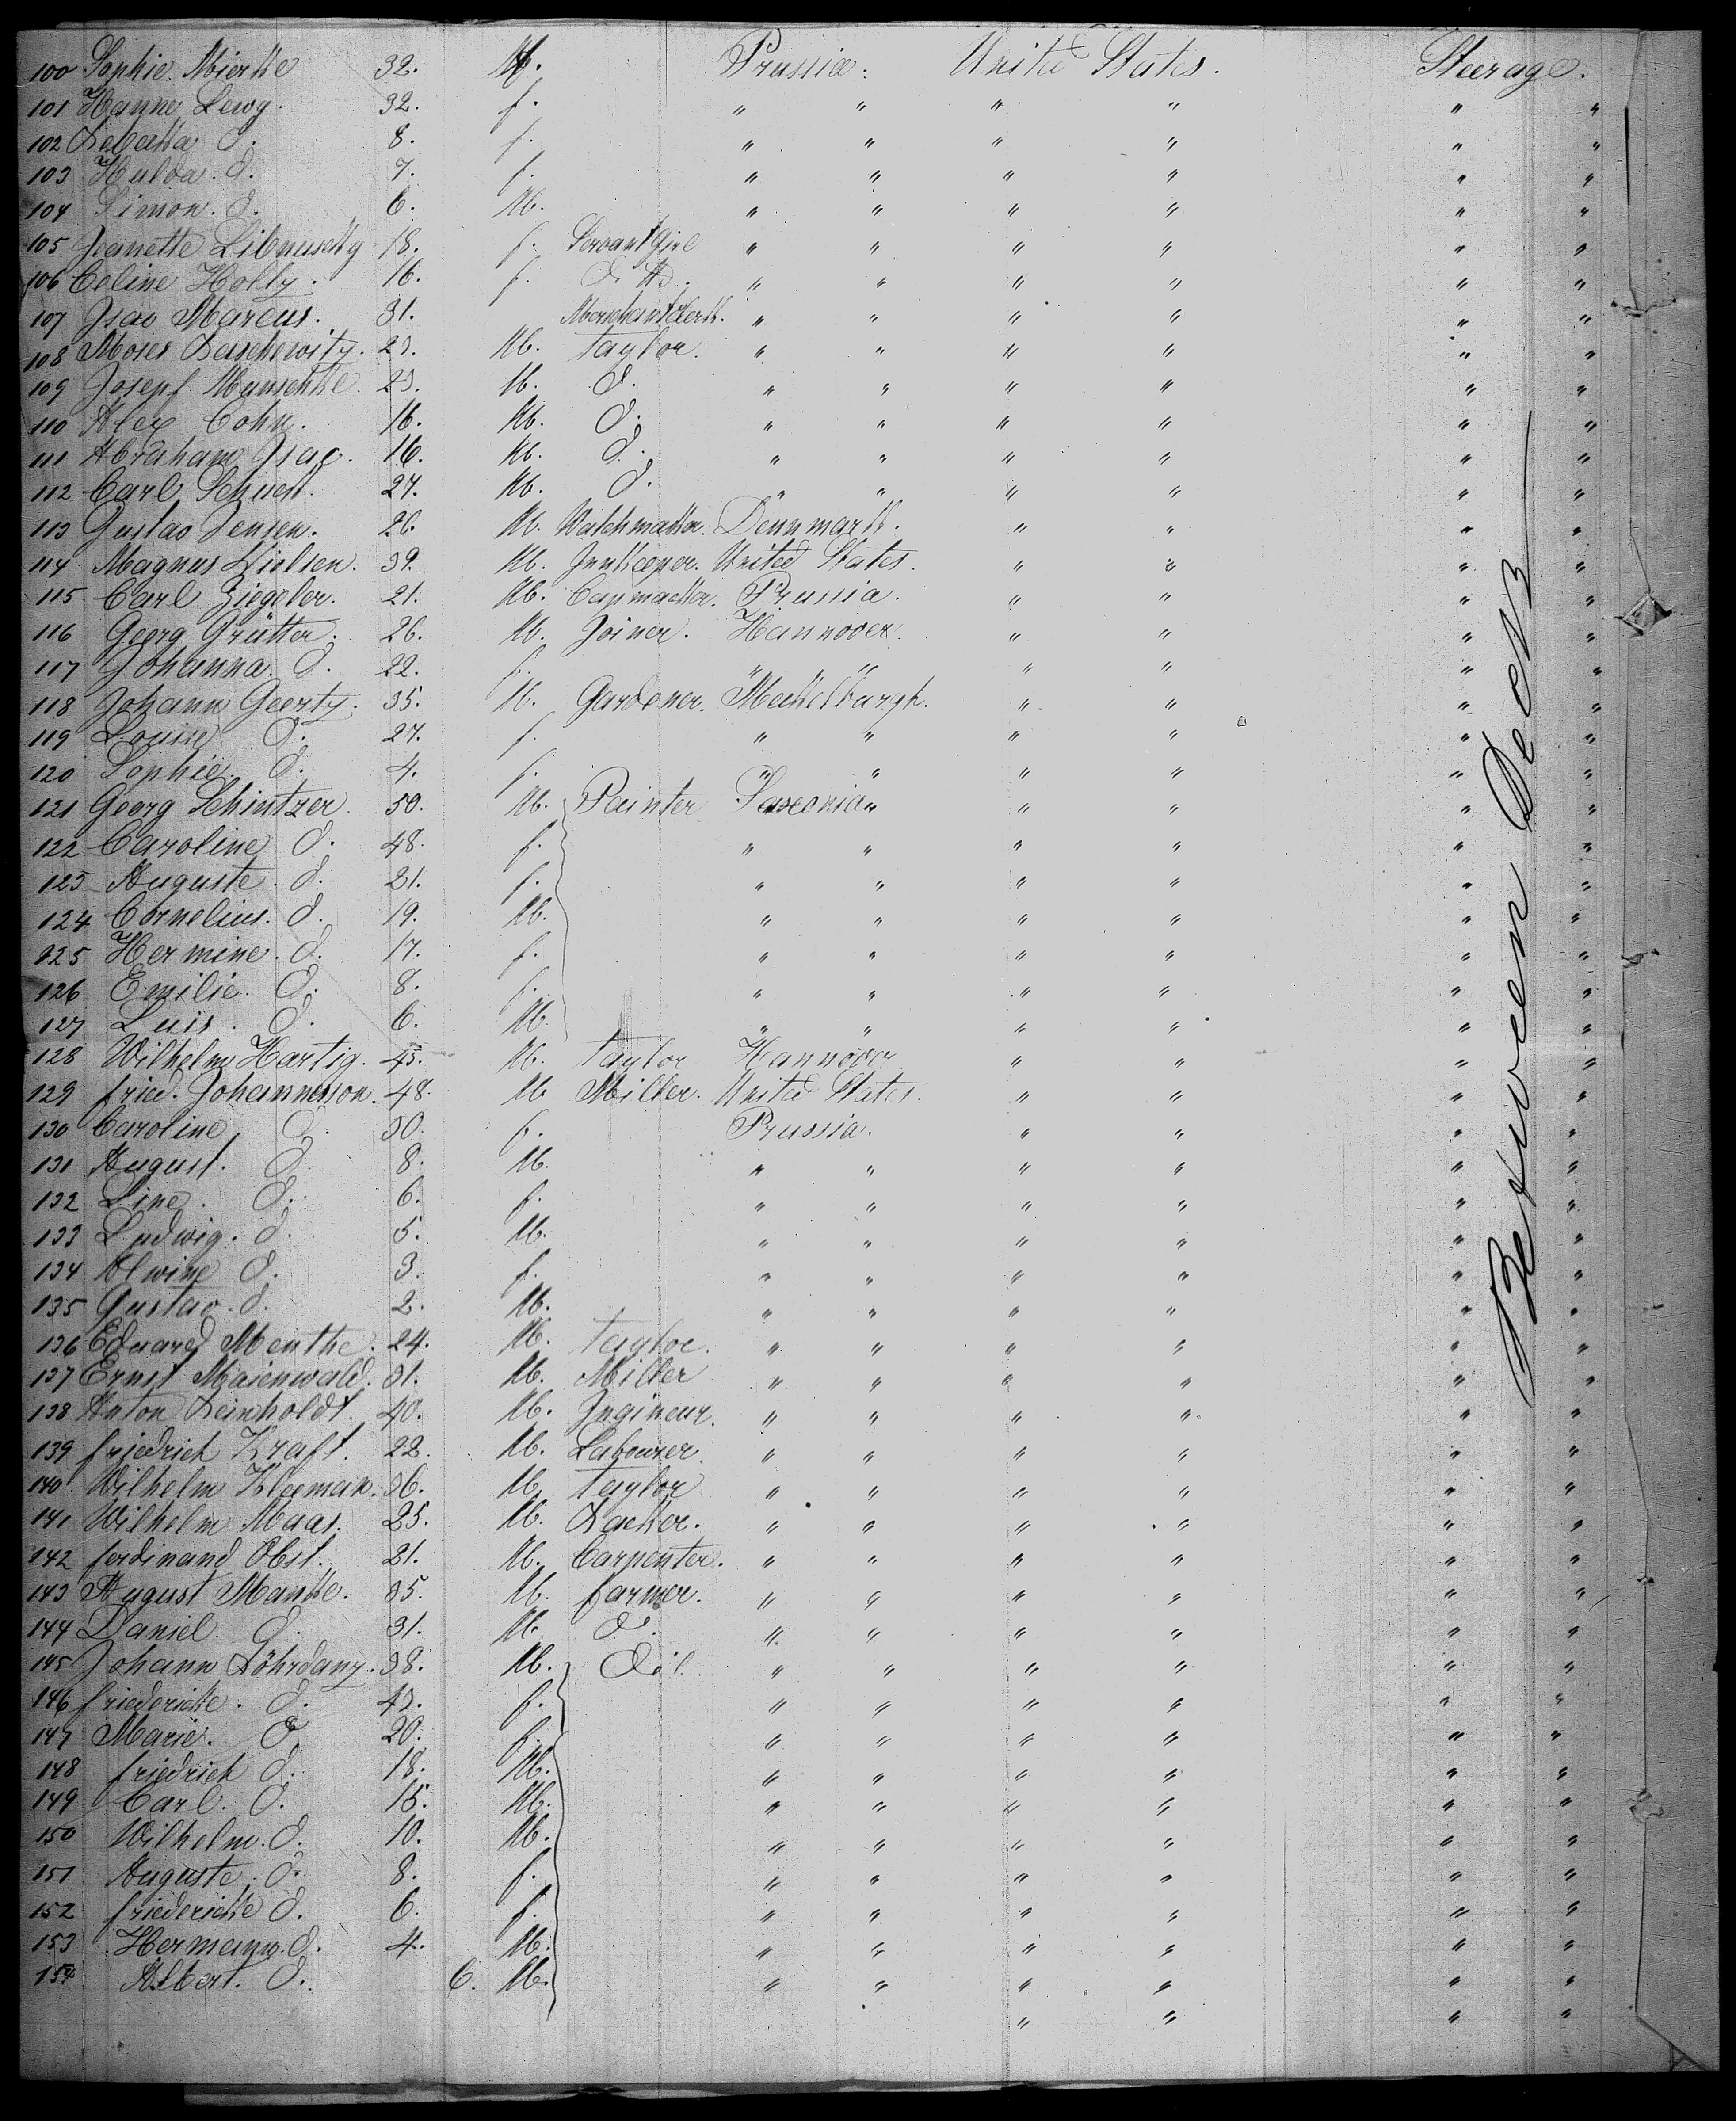 100 Sophie Mierke 32. M. Prussia. United States. Steerage.
101 Hanne Lewy. 32. f. " " " " " "
102 Rebecka d. 8. f. " " " " " "
103 Hulda. d. 7. f. " " " " " "
104 Simon. d. 6. M. " " " " " "
105 Jeanette 18. f. Servant Girl " " " " " "
106 Celine Holly. 16. f. " " " " " "
107 Isac Marcus. 31. Merchant clerk. " " " " " "
108 Moses 23. M. taylor. " " " " " "
109 Joseph 23. M. d. " " " " " "
110 Alex Cohn. 16. M. d. " " " " " "
111 Abraham Isac. 16. M. d. " " " " " "
112 Carl 27. M. d. " " " " " "
113 Gustav Jensen. 26. M. Watchmaker. Dennmark. " " " "
114 Magnus Nielsen. 39. M. Innkeeper. United States. " " " "
115 Carl Ziegeler. 21. M. Capmacker. Prussia. " " " "
116 Georg Grütter. 26. M. Joiner. Hannover. " " " "
117 Johanna. d. 22. f. " " " " " "
118 Johann Geertz. 35. M. Gardener. Meckelburgh. " " " "
119 Louise d. 27. f. " " " " " "
120 Sophie. d. 4. f. " " " " " "
121 Georg Schintzer. 50. M. Painter Saxonia " " " "
122 Caroline d. 48. f. " " " " " "
123 Auguste. d. 21. f. " " " " " "
124 Cornelius. d. 19. M. " " " " " "
125 Hermine. d. 17. f. " " " " " "
126 Emilie. d. 8. f. " " " " " "
127 Luis. d. 6. M. " " " " " "
128 Wilhelm Hartig. 45. M. taylor Hannover " " " "
129 fried. Johannesson. 48. M. Miller. United States. " " " "
130 Caroline d. 30. f. Prussia. " " " "
131 August. d. 8. M. " " " " " "
132 Line. d. 6. f. " " " " " "
133 Ludwig. d. 5. M. " " " " " "
134 Alwine d. 3. f. " " " " " "
135 Gustav. d. 2. M. " " " " " "
136 Eduard Menthe. 24. M. taylor. " " " " " "
137 Ernst Maienwald. 31. M. Miller " " " " " "
138 Anton Reinholdt. 40. M. Ingineur. " " " " " "
139 friedrich Kraft. 22. M. Labourer. " " " " " "
140 Wilhelm Kleeman. 36. M. taylor " " " " " "
141 Wilhelm Maas. 25. M. " " " " " "
142 ferdinand Obst. 21. M. Carpenter. " " " " " "
143 August Manke. 35. M. farmer. " " " " " "
144 Daniel. d. 31. M. d. " " " " " "
145 Johann 38. M. " " " " " "
146 friedericke. d. 43. f. " " " " " "
147 Marie. d. 20. f. " " " " " "
148 friedrich d. 18. M. " " " " " "
149 Carl. d. 15. M. " " " " " "
150 Wilhelm. d. 10. M. " " " " " "
151 Auguste. d. 8. f. " " " " " "
152 friedericke d. 6. f. " " " " " "
153 Hermann. d. 4. M. " " " " " "
154 Albert. d. 6. M. " " " " " "
" " " "
Between Decks